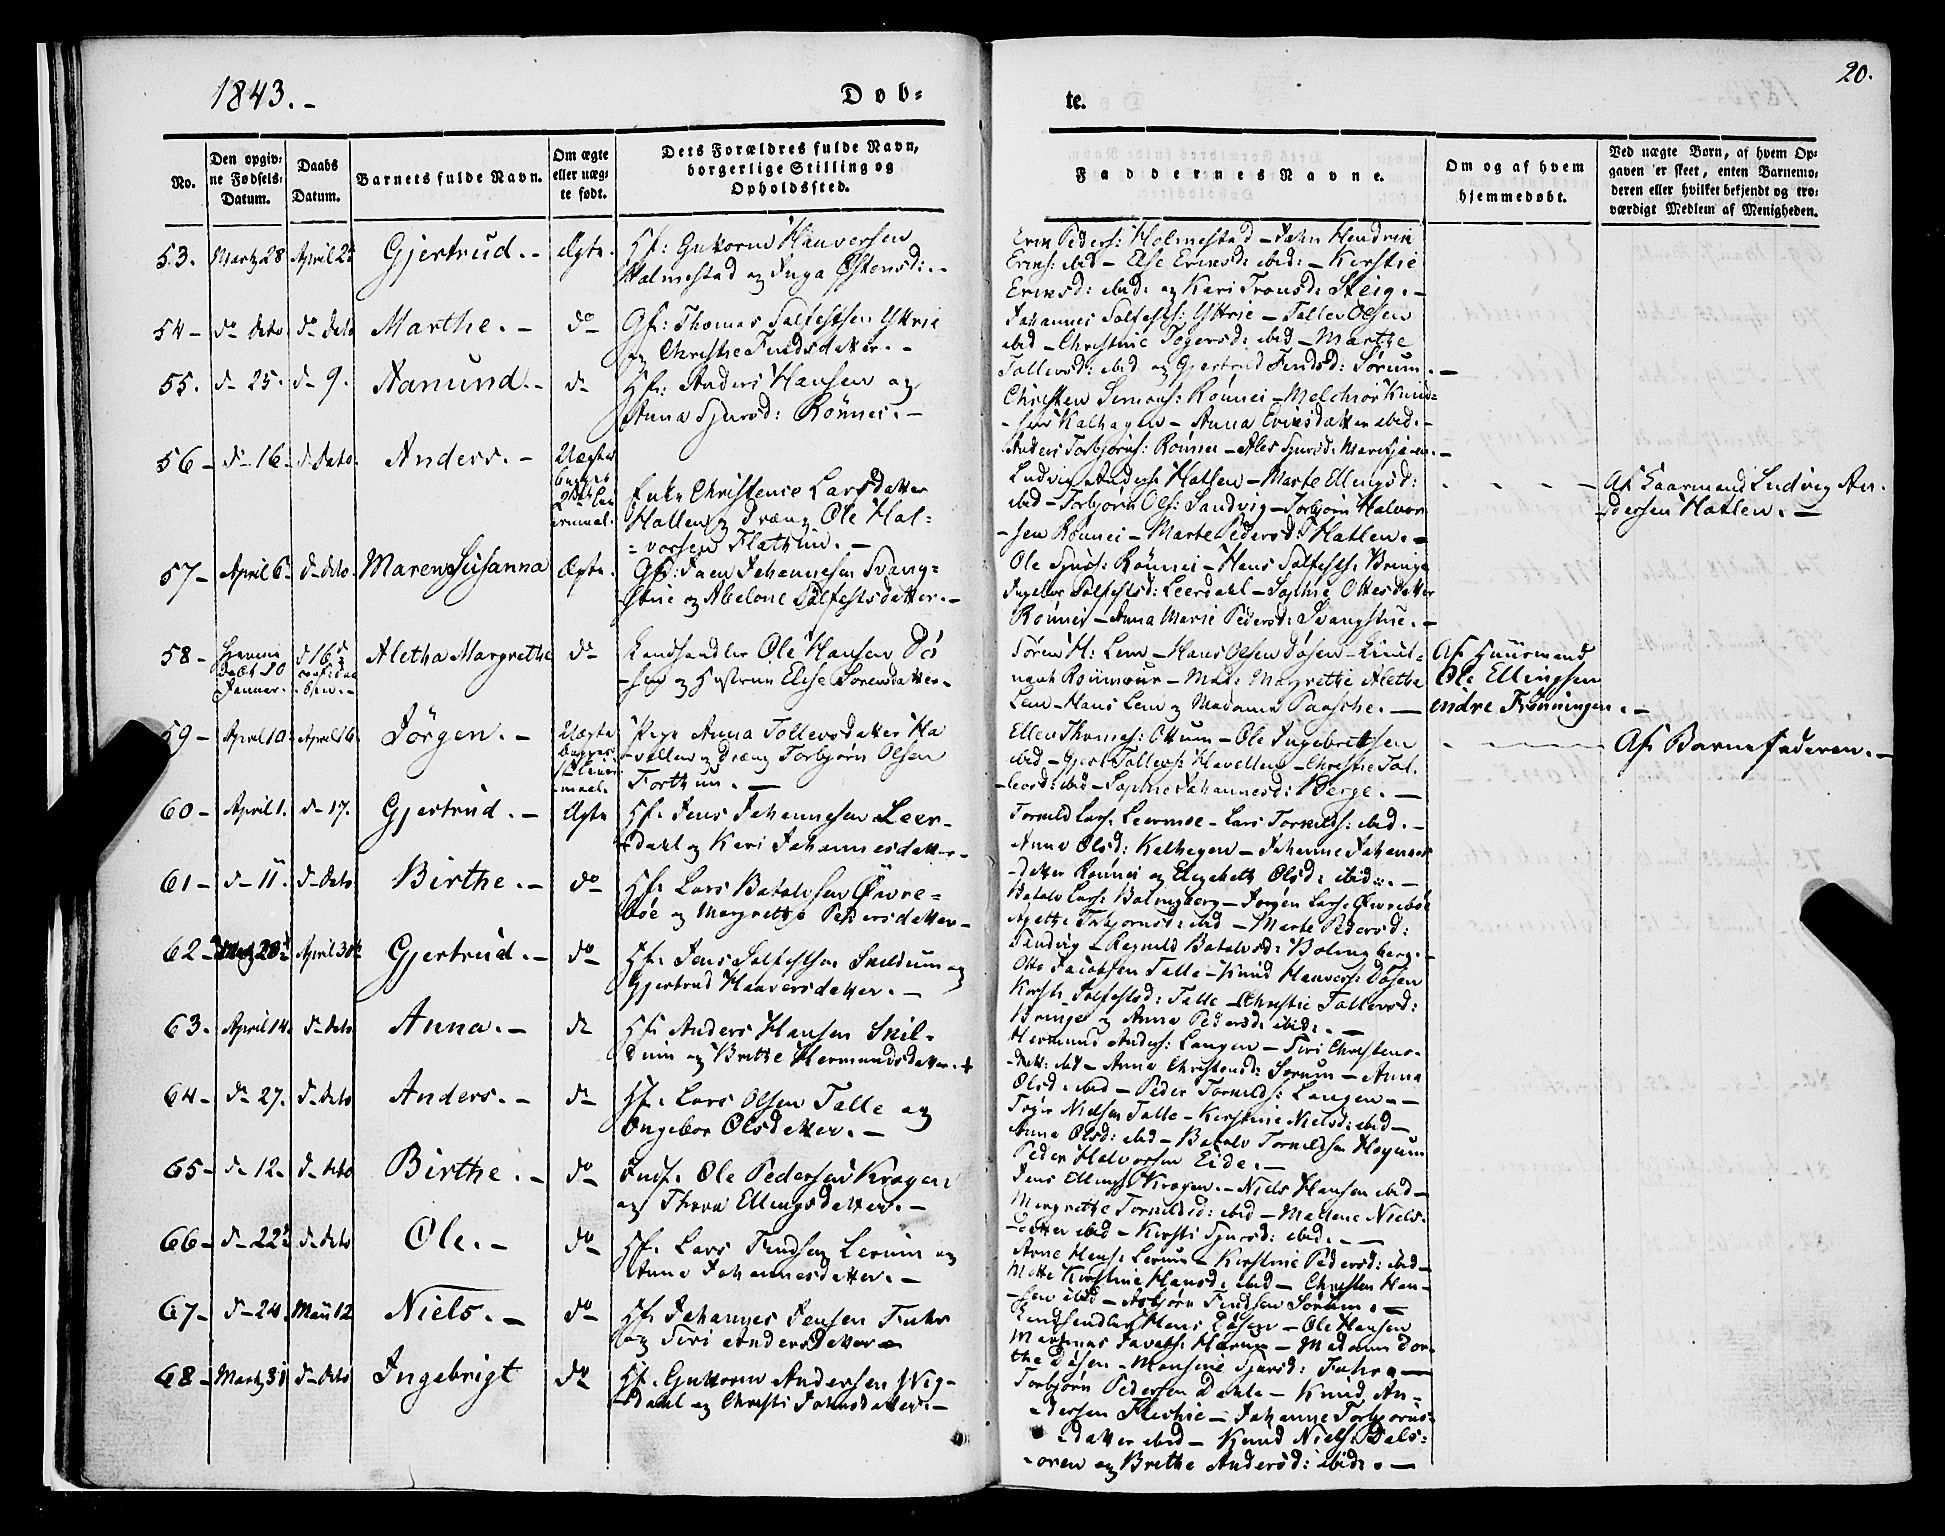 1843.-
Døb-
te.
20.
No.
Den opgiv-
ne Fødsels-
Datum.
Daabs
Datum.
Barnets fulde Navn.
Om ægte
eller uæg-
te født.
Dets Forældres fulde Navn,
borgerlige Stilling og
Opholdssted.
Faddernes Navne.
Om og af hvem
hjemmedøbt.
Ved uægte Børn, af hvem Op-
gaven er skeet, enten Barnemo-
deren eller hvilket bekjendt og tro-
værdigt Medlem af Menigheden.
53. Martz 28 April 2d Gjertrud.- Ægte.
Holmestad og Inga Østensd:.-
Erik Peders: Holmestad - John Hendrik
Eriks: ibid - Else Eriksd: ibid: - Kirstie
Eriksd: ibid: og Kari Tronsd: Steig.-
54- do dito. do dito Marthe.- do Gf: Thomas Salfestsen Yttrie
og Christie Findsdatter.-
Johannes Salfests: Yttrie - Toller Olsen
ibid - Christine Togersd: ibid - Marthe
Tollersd: ibid og Gjertrud Findsd: Sørum.-
55. d- 25. d- 9. Aamund.- d- Hf: Anders Hansen og
Anna Sjursd: Rönnei.-
Christen Simons: Rönnei - Melchior Knud-
-sen Kalhagen - Anna Eriksdatter ibid.-
Anders Torbjörns: Rönnei -
56- d- 16. d- dito. Anders.- Uægte
Pige Christense Larsdatter
Hatlen og Dreng Ole Hal-
-vorsen Flattun.-
Ludvig Anders: Hatlen - Marte Ellingsd:
ibid - Torbjörn Ols: Sandvig - Torbjörn Halvor-
-sen Rönnei - Marte Pedersd: Hatlen.-
Af Huusmand Ludvig An-
-dersen Hatlen.-
57- April 6- d- dito. Maren Susanna Ægte. Gf: Johannesen Svang-
-stue og Abelone Salfestsdatter.-
Ole Sjurs: Rönnei - Hans Salfests: Bringe
Ingebor Salfestsd: Leerdahl - Sophie Ottesdatter
Rönnei - Anna Marie Pedersd: Svangstue.-
58- Januar. d 16d Aletha Margrethe d- Landhandler Ole Hansen Dö-
-sen og Hustrue Elise Sörensdatter-
Sören H: Lem - Hans Olsen Dösen -
Margrethe Aletha
Lem - Hans Lem og Madame Paasche.-
Af Huusmand
Ole Ellingsen
indre Frönningen.-
59- April 10. April 16. Jörgen.- Uægte
Pige Anna Tollersdatter Ha-
-vellen og Dreng Torbjörn Olsen
Forthun.-
Ellen Thomas: Ottum - Ole Ingebretsen
ibid - Tollers: Havellen - Christie Tol-
-lersd: ibid - Sophie Johannesd: Berge.-
Af Barnefaderen.-
60- April 1. d- 17. Gjertrud.- Ægte Hf. Jens Johannesen Leer-
-dahl og Kari Johannesdatter-
Tormild Lars: Leermoe - Lars Tormilds: ibid.-
Anna Olsd: Kalhagen - Johanne Johannes-
-datter Rönnei og Elizabeth Olsd: ibid:.-
61- d- 11. d- dito Birthe.- do Hf. Lars Batolvsen Övre-
-böe og Margrethe Pedersdatter-
Batolv Lars: Bolingberg - Jörgen Lars: Övreböe
Agethe Torbjörnsd: ibid - Marte Pedersd:
Sandvig - Ragnild Batolvsd: Bolingberg.-
62- April 30te Gjertrud.- do Hf. Jens Salfestsen Snildum og
Gjertrud Haaversdatter.-
Otto Jacobsen Talle - Knud Haavers: Dösen
Kirsti Salfestsd: Talle - Christie Tollersd:
Bringe og Anna Pedersd: ibid:.-
63. April 14. d- dito Anna.- d- Hf: Anders Hansen Snil-
-dum og Britte Hermundsdatter.+
Hermund Anders: Langen - Siri Christens-
-datt: ibid - Anna Christensd: Sørum - Anna
Olsd: ibid - Peder Tormilds: Langen.-
64- d- 27. d- dito Anders.- d- Hf. Lars Olsen Talle og
Ingebor Olsdatter.-
Toger Nielsen Talle - Kirstine Nielsd: ibid-
Anna Olsd: ibid - Batolv Tormildsen Høyum
Peder Halvorsen Eide.-
65- d- 12- d- dito Birthe.- do Indf. Ole Pedersen Kragen
og Thora Ellingsdatter.-
Jens Ellings: Kragen.- Niels Hansen ibid-
Margrethe Tormildsd: ibid - Madame Niels-
-datter ibid - Kirsti Sjursd: ibid.-
66- d- 22d d- dito Ole.- do Hf. Lars Findsen Lerum og
Anna Johannesdatter.-
Arne Hans: Lerum - Kirstine Pedersd: ibid-
Mette Kirstine Hansd: ibid - Christen Han-
-sen ibid - Asbjörn Findsen Sørum.-
67- d- 24. Maii 12 Niels.- do Hf Johannes Jensen Fuhr
og Siri Andersdatter-
Landhandler Hans Dösen - Ole Hansen
Madame Dor-
-the Dösen - Monsine Sjursd: Fuhr.-
68- Martz 31 d- dito Ingebrigt do Hf. Guttorm Andersen Wig-
-dahl og Christi Johnsdatter.-
Torbjörn Pedersen Dahle - Knud An-
-dersen Flichie - Johanne Torbjörns-
-datter ibid - Knud Niels: Dals-
-ören og Brithe Andersd: ibid:.-